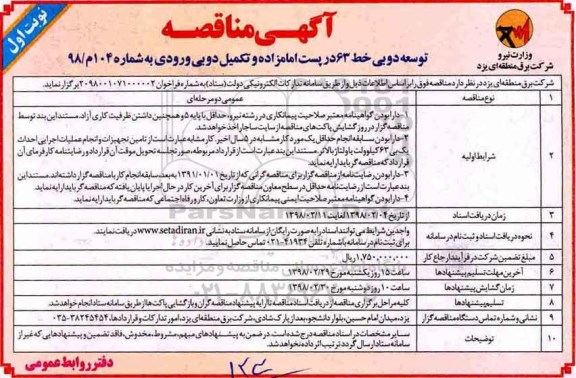 نوبت اول
آگهی مناقصه
وزارت نیرو
شرکت برق منطقه‌ای یزد
توسعه دو بی خط ۶۳ در پست امامزاده و تکمیل دو بی ورودی به شماره ۱۰۴م/۹۸
شرکت برق منطقه‌ای یزد در نظر دارد مناقصه فوق را بر اساس اطلاعات ذیل و از طریق سامانه تدارکات الکترونیکی دولت (ستاد) به شماره فراخوان ۲۰۹۸۰۰۱۰۷۱۰۰۰۰۰۲ برگزار نماید.
۱ نوع مناقصه عمومی دو مرحله‌ای
۲ شرایط اولیه
۱- دارا بودن گواهینامه معتبر صلاحیت پیمانکاری در رشته نیرو، حداقل با پایه ۵ و همچنین داشتن ظرفیت کاری آزاد. مستند این بند توسط
مناقصه گزار در روز گشایش پاکت‌های مناقصه از سایت ساجار اخذ خواهد شد.
۲- دارا بودن سابقه انجام حداقل یک مورد کار مشابه در ۵ سال اخیر. کار مشابه عبارت است از تامین تجهیزات و انجام عملیات اجرایی احداث
یک بی ۶۳ کیلوولت یا ولتاژ بالاتر. مستند این بند عبارت است از قرارداد مربوطه، صورتجلسه تحویل موقت آن قرارداد و رضایتنامه کارفرمای آن
قرارداد که مناقصه گر باید ارایه نماید.
۳- دارا بودن رضایت نامه از مناقصه گزار برای مناقصه گرانی که از تاریخ ۱۳۹۱/۰۱/۰۱ به بعد سابقه انجام کار با مناقصه گزار داشته‌اند. مستند این
بند عبارت است از رضایت نامه حداقل در سطح معاون مناقصه گزار برای آخرین کار در حال اجرا یا پایان یافته که مناقصه گر باید ارایه نماید.
۴- دارا بودن گواهینامه معتبر صلاحیت ایمنی پیمانکاری از وزارت تعاون، کار و رفاه اجتماعی که مناقصه گر باید ارایه نماید.
۳ زمان دریافت اسناد از تاریخ ۱۳۹۸/۰۲/۰۴ لغایت ۱۳۹۸/۰۲/۱۱
۴ نحوه دریافت اسناد و ثبت نام در سامانه واجدین شرایط می‌توانند اسناد را به صورت رایگان از سامانه ستاد به نشانی www.setadiran.ir دریافت نمایند.
برای ثبت نام در سامانه با شماره تلفن ۴۱۹۳۴-۰۲۱ تماس حاصل نمایید.
۵ مبلغ تضمین شرکت در فرآیند ارجاع کار ۱,۷۵۰,۰۰۰,۰۰۰ ریال
۶ آخرین مهلت تسلیم پیشنهادها ساعت ۱۵ روز یکشنبه مورخ ۱۳۹۸/۰۲/۲۹
۷ زمان گشایش پیشنهادها ساعت ۱۰ روز دوشنبه مورخ ۱۳۹۸/۰۲/۳۰
۸ تسلیم پیشنهادها کلیه مراحل برگزاری مناقصه از دریافت اسناد مناقصه تا ارایه پیشنهاد مناقصه گران و بازگشایی پاکت‌ها از طریق سامانه ستاد انجام خواهد شد.
۹ نشانی و شماره تماس دستگاه مناقصه گزار یزد، میدان امام حسین، بلوار دانشجو، بعد از پارک شادی، شرکت برق منطقه‌ای یزد، امور تدارکات و قراردادها، ۳۸۲۴۵۴۵۴-۰۳۵
۱۰ توضیحات سایر مشخصات در اسناد مناقصه درج شده است. در ضمن به پیشنهادهای مبهم، مشروط، مخدوش، فاقد تضمین و پیشنهادهایی که غیر از
سامانه ستاد ارسال گردد ترتیب اثر داده نخواهد شد.
دفتر روابط عمومی